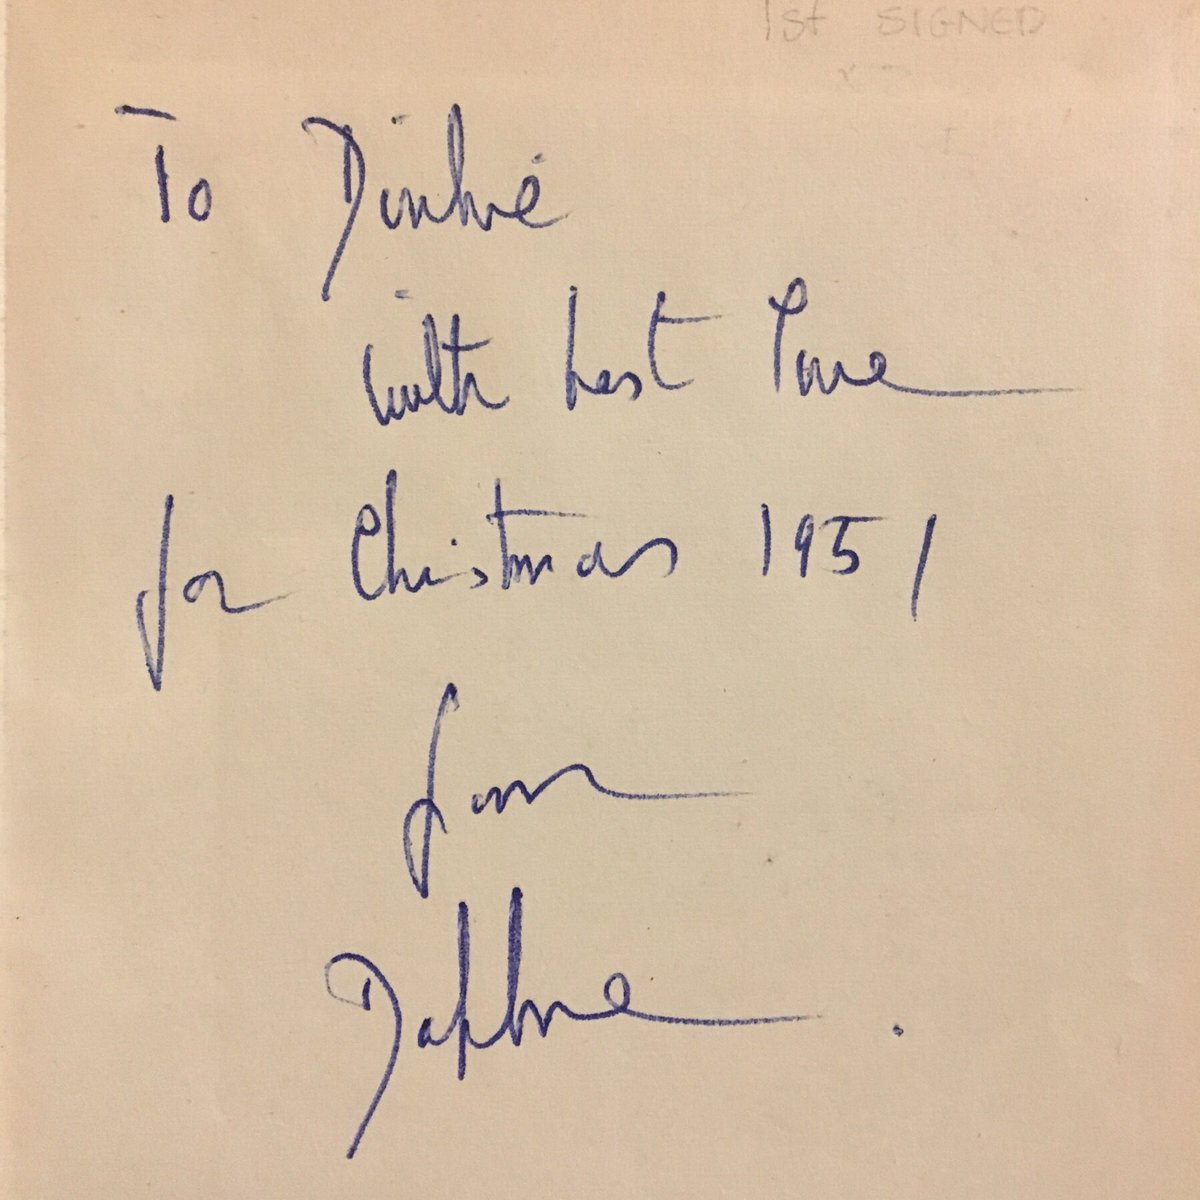 1st SIGNED
To Dinkie
with best love
for Christmas 1951
from
Daphne.